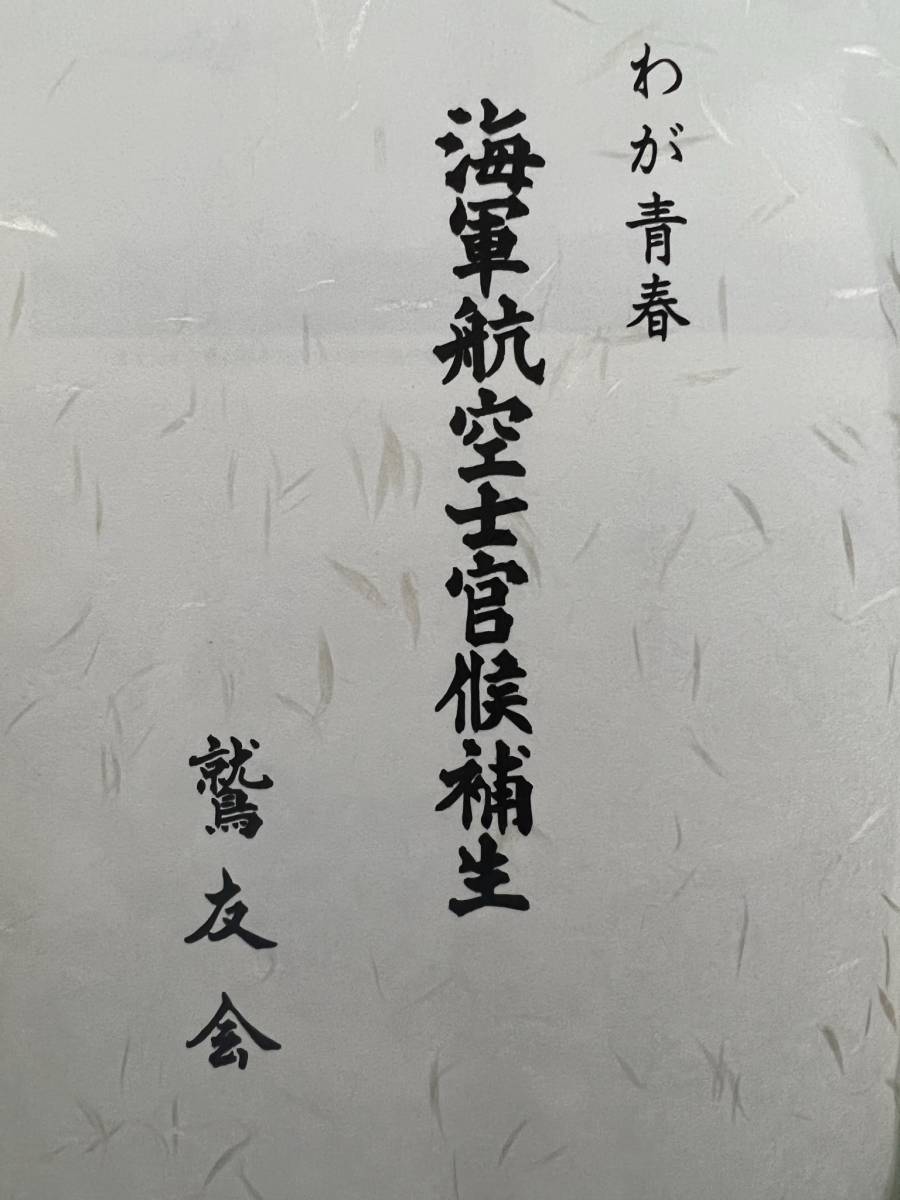 わが青春
海軍航空士官候補生
鷲友会